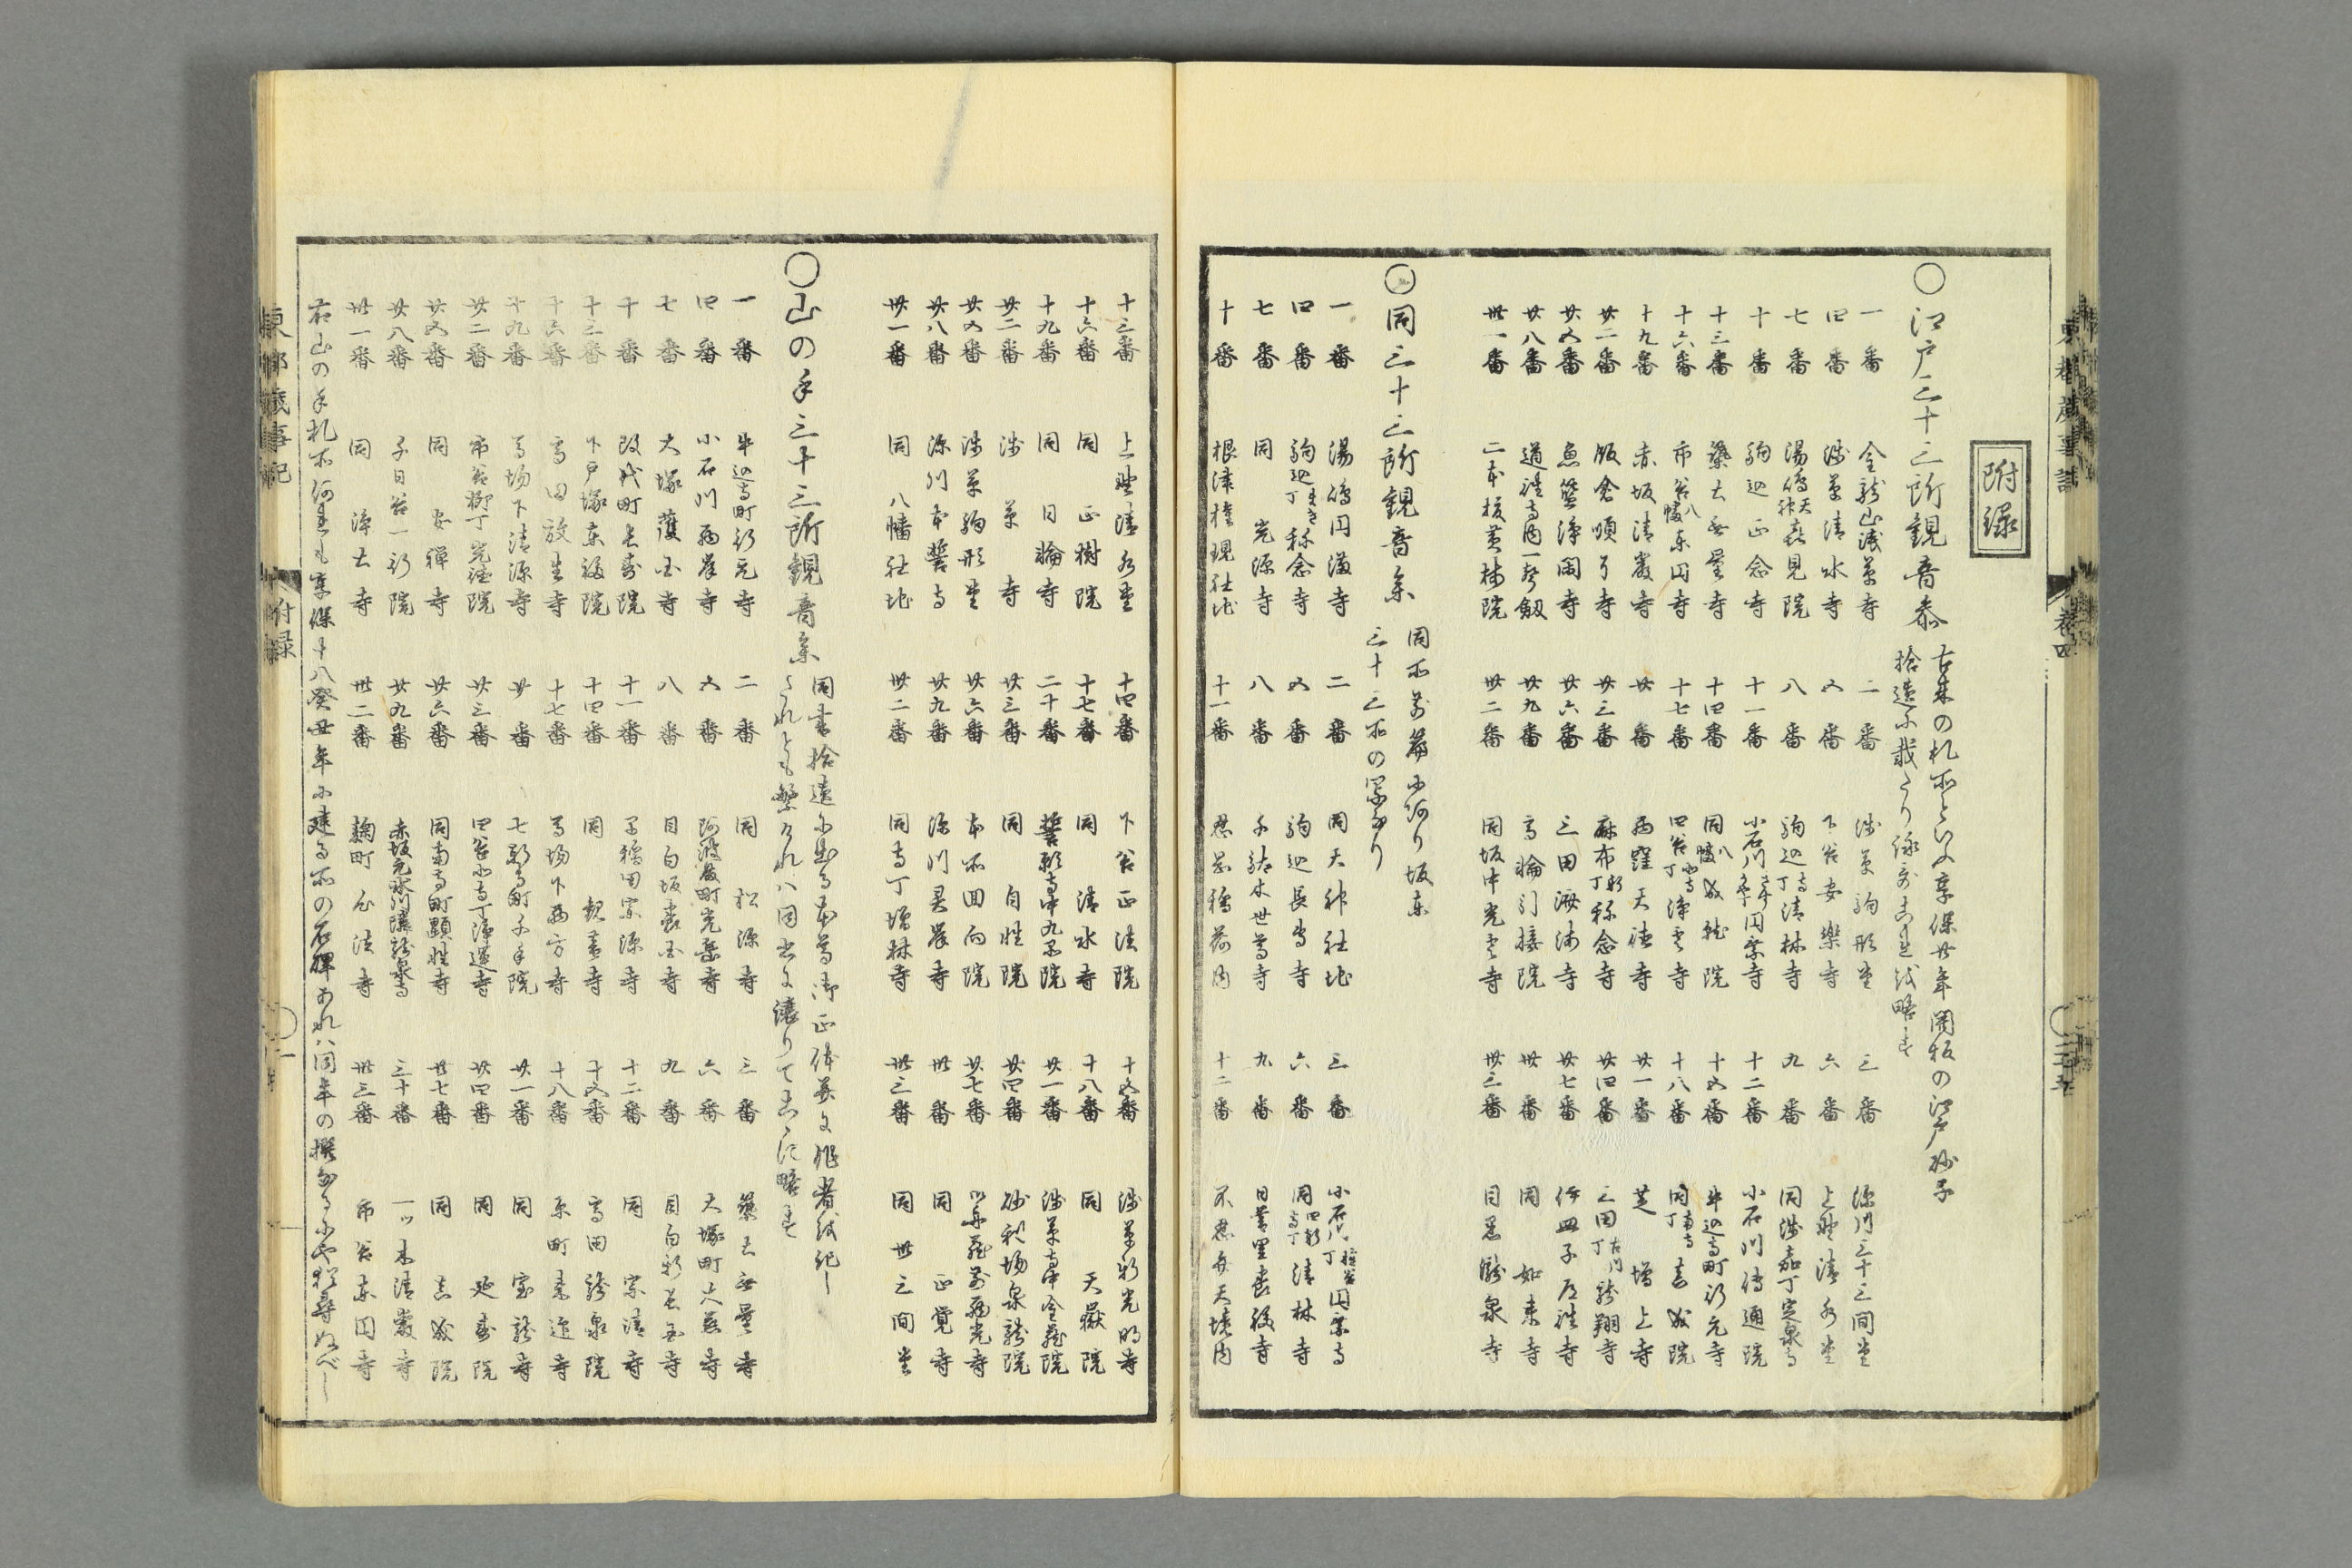 附録
○江戸三十三所観音参
古来の札所といふ享保廿年開板の江戸砂子
拾遺に載たり詠哥これを略す
一番 金龍山浅草寺 二番 浅草駒形堂 三番 深川三十三間堂
四番 浅草清水寺 五番 下谷安楽寺 六番 上野清水堂
七番 湯嶋天神喜見院 八番 駒込寺丁清林寺 九番 同浅嘉丁定泉寺
十番 駒込正念寺 十一番 小石川円乗寺 十二番 小石川傳通院
十三番 築土無量寺 十四番 同八幡成就院 十五番 牛込寺町行元寺
十六番 市谷八幡東円寺 十七番 四谷寺丁浄雲寺 十八番 同南寺丁真成院
十九番 赤坂清巌寺 廿番 西窪天徳寺 廿一番 芝増上寺
廿二番 飯倉順了寺 廿三番 麻布新丁称念寺 廿四番 三田古川丁龍翔寺
廿五番 魚籃浄閑寺 廿六番 三田済海寺 廿七番 伊皿子道往寺
廿八番 道往寺内一聲剱 廿九番 高輪引接院 卅番 同如来寺
卅一番 二本榎黄梅院 卅二番 同坂中光雲寺 卅三番 目黒瀧泉寺
○同三十三所観音参
同所前篇に洩り坂東
三十三所の写なり
一番 湯嶋円満寺 二番 同天神社地 三番 小石川指谷丁円乗寺
四番 駒込丁称念寺 五番 駒込長寺 六番 同四軒寺丁清林寺
七番 同光源寺 八番 千駄木世尊寺 九番 日暮里養福寺
十番 根津権現社地 十一番 忍岡稲荷内 十二番 不忍弁天境内
十三番 上野清水堂 十四番 下谷正法院 十五番 浅草新光明寺
十六番 同正樹院 十七番 同清水寺 十八番 同天嶽院
十九番 同日輪寺 二十番 誓願寺中九品院 廿一番 浅草寺中金蔵院
廿二番 浅草寺 廿三番 同自性院 廿四番 砂利場泉龍院
廿五番 浅草駒形堂 廿六番 本所回向院 廿七番 御舟蔵前西光寺
廿八番 深川本誓寺 廿九番 深川霊巌寺 卅番 同正覚寺
卅一番 同八幡社地 卅二番 同寺丁増林寺 卅三番 同卅三間堂
○山の手三十三所観音参
同書拾遺に出る本尊御正体并に作者を記し
たれとも繁けれハ同書に譲りてこゝに略す
一番 牛込寺町行元寺 二番 同松源寺 三番 築土無量寺
四番 小石川西岸寺 五番 阿波殿町光岳寺 六番 大塚町大慈寺
七番 大塚護国寺 八番 目白坂養国寺 九番 目白新長谷寺
十番 改代町長寿院 十一番 早稲田宗源寺 十二番 同宗清寺
十三番 下戸塚東福院 十四番 同観音寺 十五番 高田龍泉院
十六番 高田放生寺 十七番 馬場下西方寺 十八番 原町来迎寺
十九番 馬場下清源寺 廿番 七軒寺町千手院 廿一番 同宝龍寺
廿二番 市谷柳丁光徳院 廿三番 四谷北寺丁浄運寺 廿四番 同延寿院
廿五番 同安禅寺 廿六番 同南寺町顕性寺 廿七番 同真成院
廿八番 子日谷一行院 廿九番 赤坂元氷川隣龍泉寺 三十番 一ツ木清巌寺
卅一番 同浄土寺 卅二番 麹町心法寺 卅三番 市谷東円寺
右山の手札所何れも享保十八癸丑年に建る所の石碑あれハ同年の撰なるにや猶尋ぬべし
東都歳事記 附録
東都歳事記 巻四